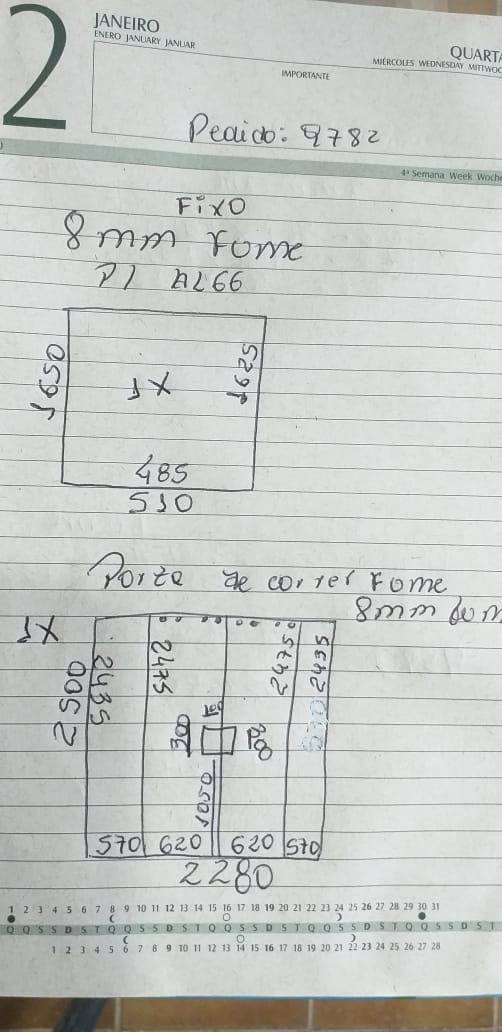 2
JANEIRO
ENERO JANUARY JANUAR
QUARTA
MIÉRCOLES WEDNESDAY MITTWOC
IMPORTANTE
Pedido: 9782
4ª Semana Week Woche
FixO
8mm fome
1650
1x
1625
485
510
Porta de correr fome
8mm
1x
2500
2435
2475
2475
2435
300
1050
570 620 620 570
2280
1 2 3 4 5 6 7 8 9 10 11 12 13 14 15 16 17 18 19 20 21 22 23 24 25 26 27 28 29 30 31
Q Q S S D S T Q Q S S D S T Q Q S S D S T Q Q S S D S T Q Q S S D S T
1 2 3 4 5 6 7 8 9 10 11 12 13 14 15 16 17 18 19 20 21 22 23 24 25 26 27 28